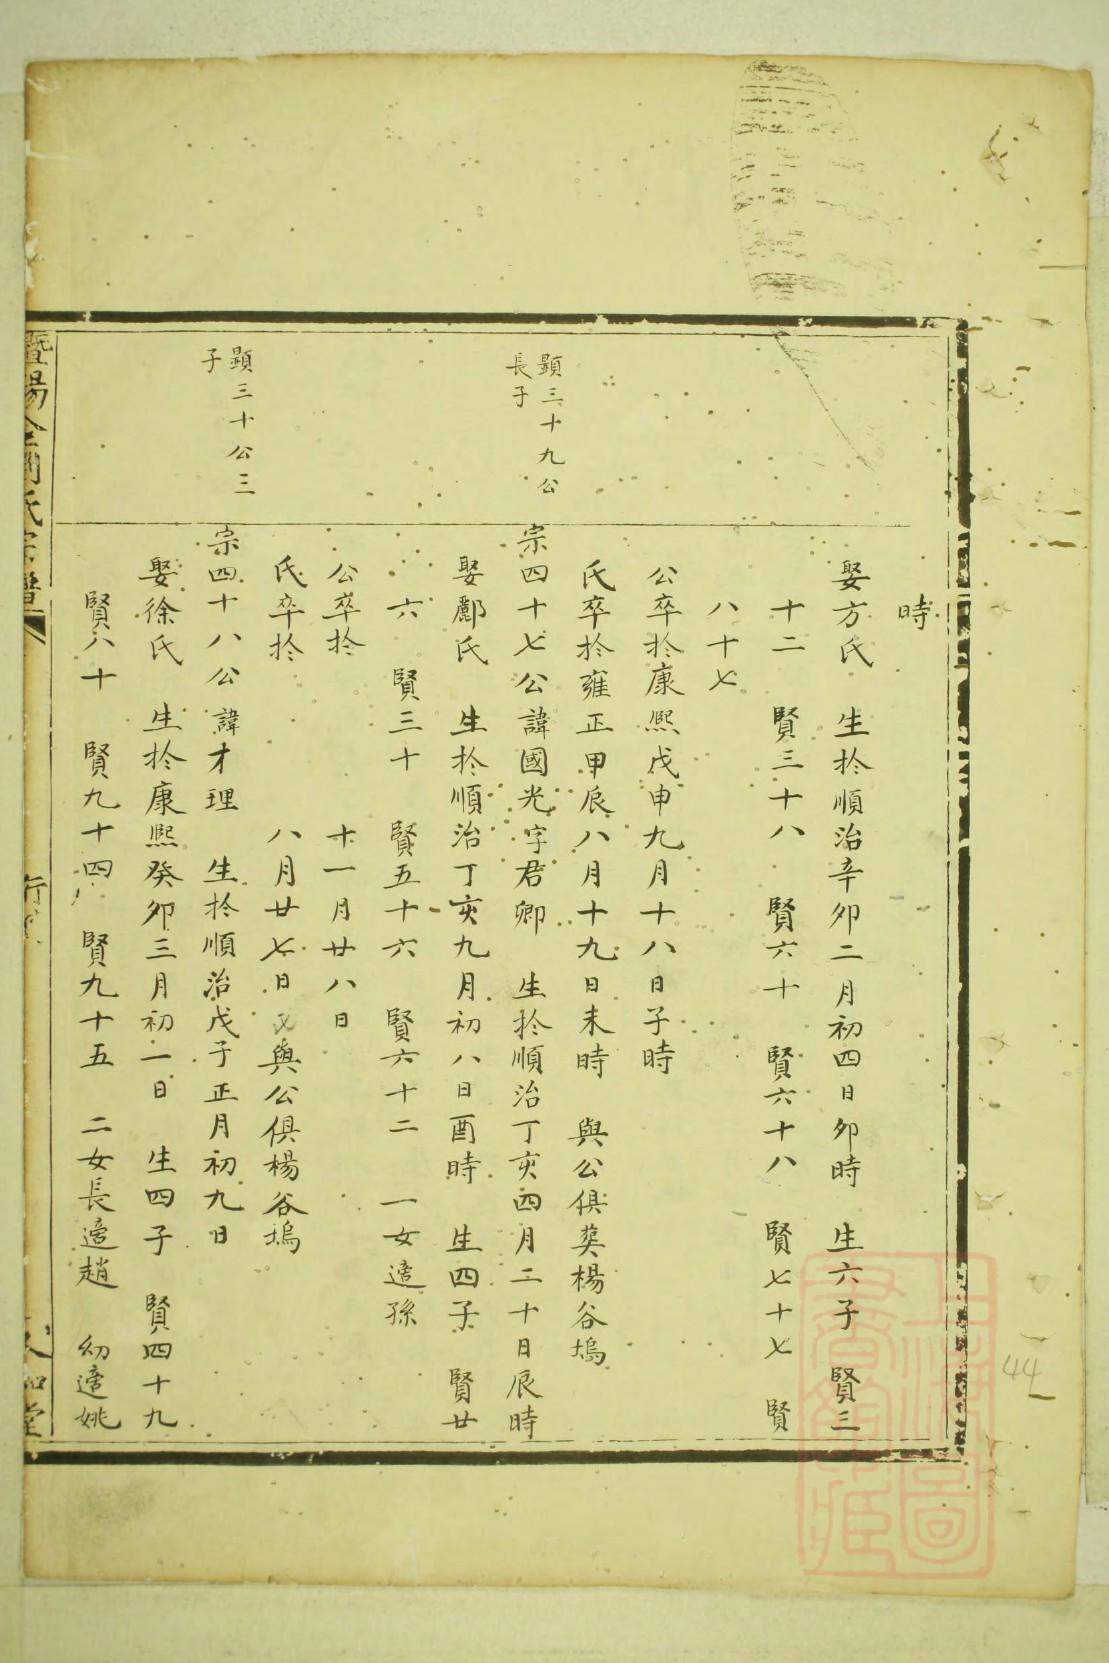 時
娶方氏　生於順治辛卯二月初四日卯時　生六子　賢三
十二　賢三十八　賢六十　賢六十八　賢七十七　賢
八十七
公卒於康熙戊申九月十八日子時
氏卒於雍正甲辰八月十九日未時　與公俱葬楊谷塢
顯三十九公
長子
宗四十七公諱國光字君卿　生於順治丁亥四月二十日辰時
娶酈氏　生於順治丁亥九月初八日酉時　生四子　賢廿
六　賢三十　賢五十六　賢六十二　一女適孫
公卒於　十一月廿八日
氏卒於　八月廿七日　與公俱楊谷塢
顯三十公三
子
宗四十八公諱才理　生於順治戊子正月初九日
娶徐氏　生於康熙癸卯三月初一日　生四子　賢四十九
賢八十　賢九十四　賢九十五　二女長適趙　幼適姚
44